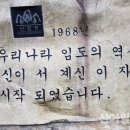 1968년
우리나라 임도의 역사
신이 서 계신 이 자
시작 되었습니다.